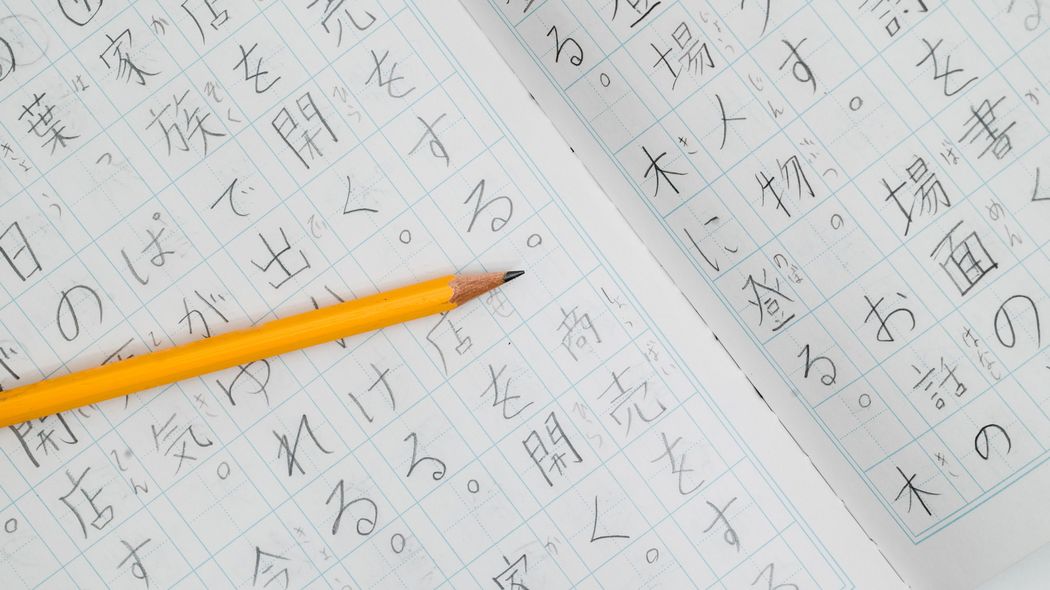 話を書く
す。場面の
登場人物のお話の
る。木に登る。木
売をする。商売をする
店を開く。店を開く。
家族で出かける。家
葉っぱがゆれる。
日の天気。今
が開店す